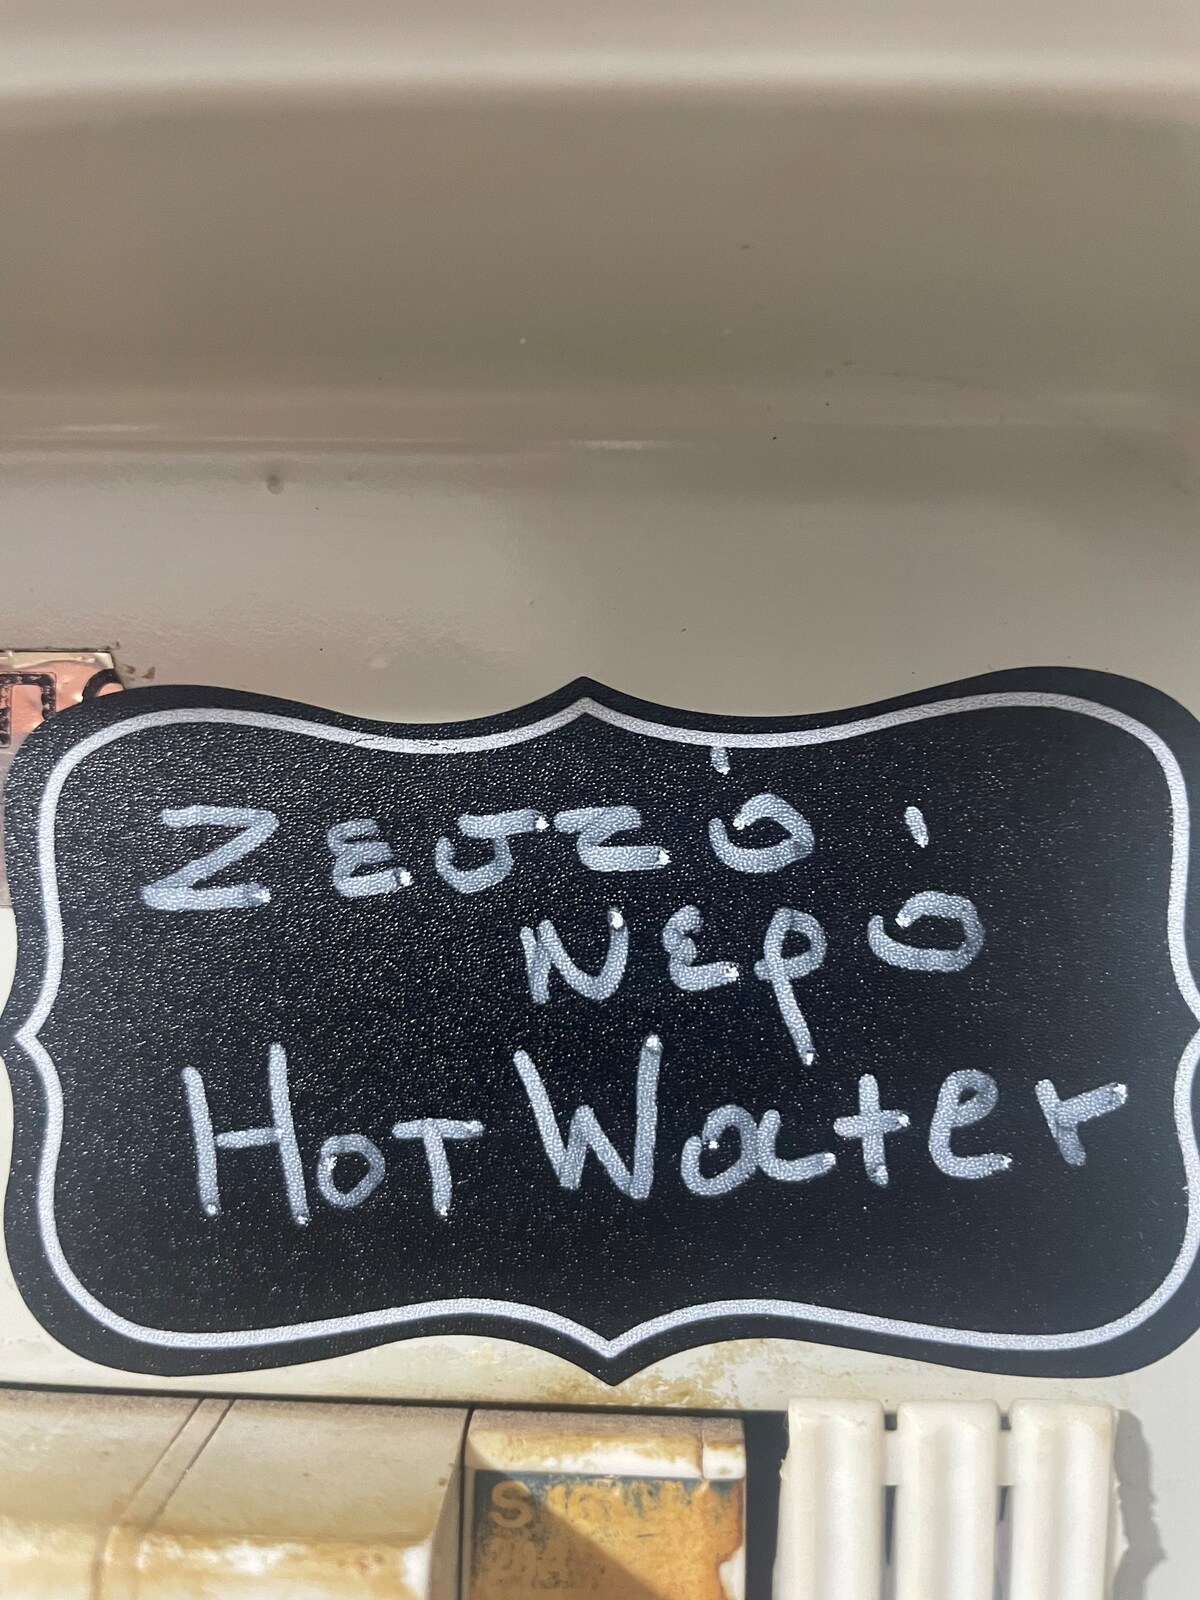 ΖΕσΤό
Νερό
Hot Water